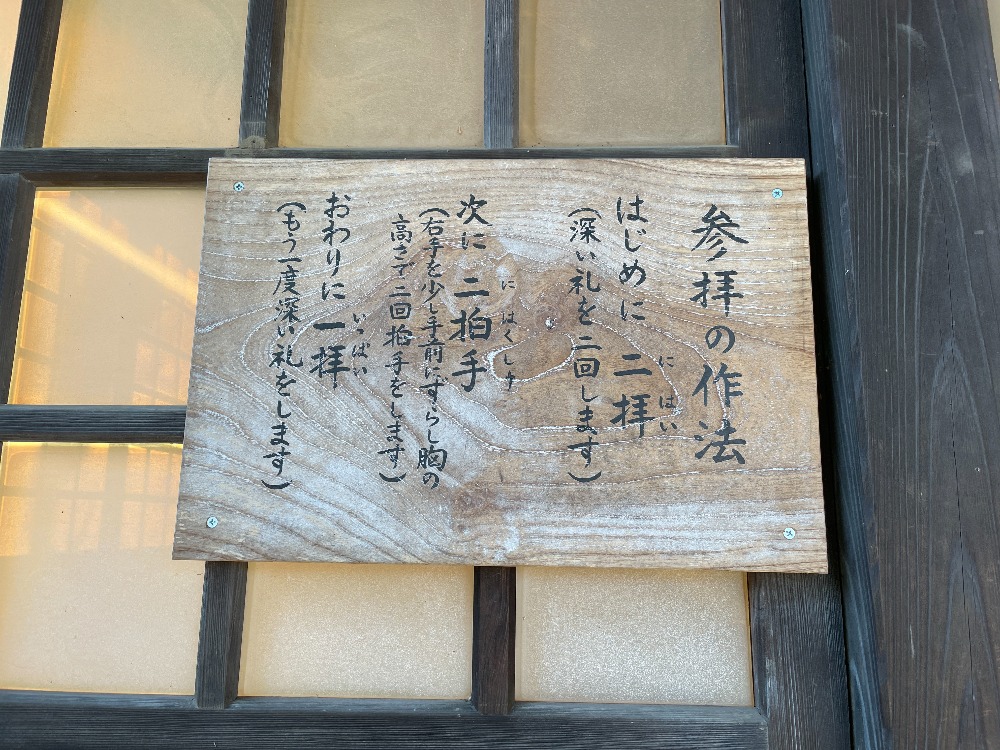 参拝の作法
はじめに 二拝
にはい
(深い礼を二回します)
次に 二拍手
にはくしゅ
(右手を少し手前にずらし胸の
高さで二回拍手をします)
おわりに 一拝
いっぱい
(もう一度深い礼をします)